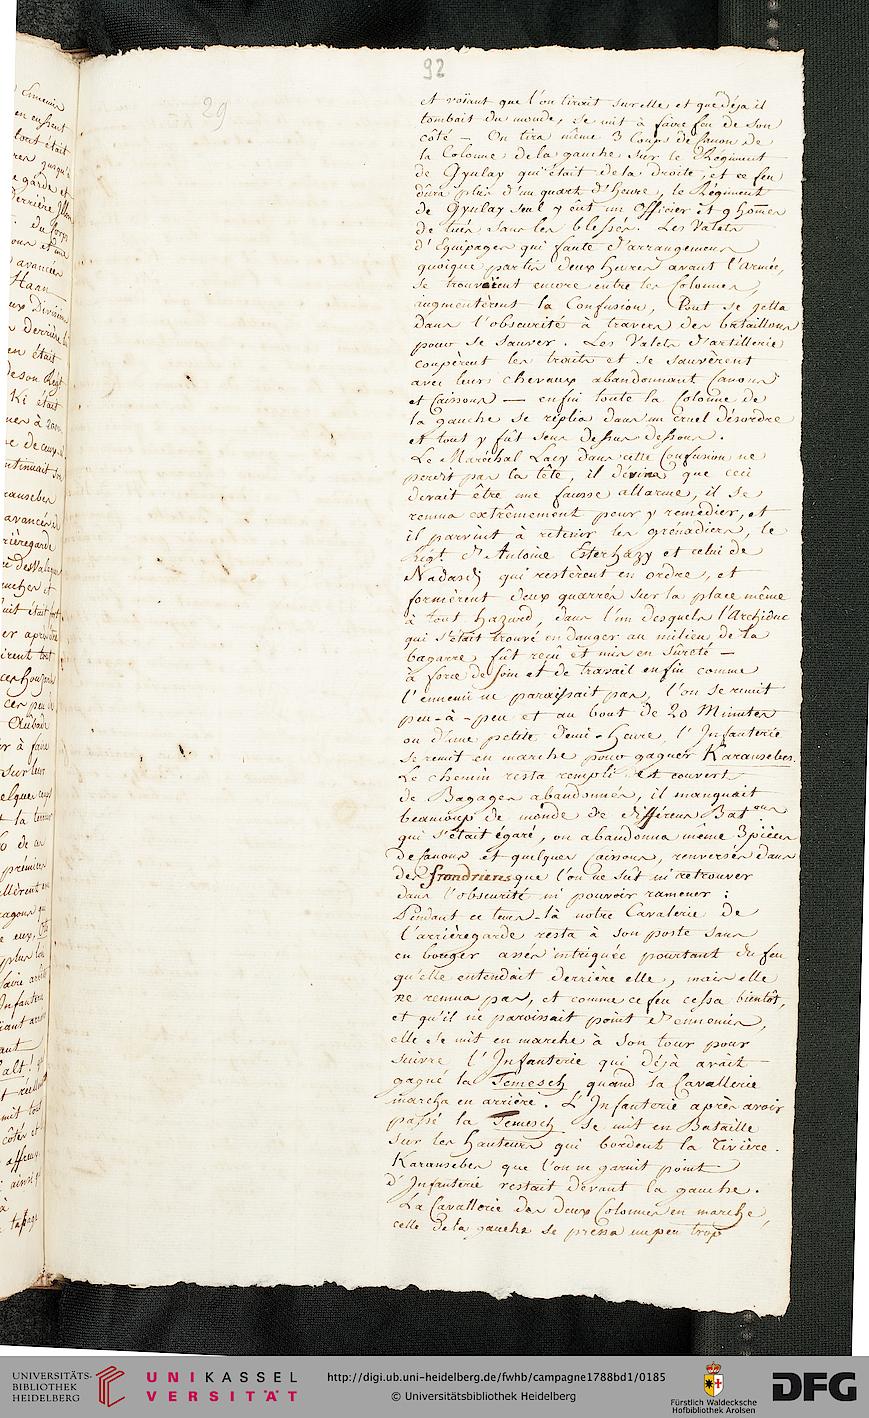 92
29
et voïant que l'on tirait sur elle et que déja il
tombait du monde, se mit à faire feu de son
côté — On tira même 3 Coups de Canon de
la Colonne de la gauche sur le Régiment
de Gyulay qui était de la droite, et ce feu
dura plus d'un quart d'heure, le Régiment
de Gyulay seul y eût un Officier et 9 hom̄es
de tués sans les blessés. Les Valets
d'Equipages qui faute d'arrangemens
quoique partis deux heures avant l'Armée,
se trouvoient encore entre les Colonnes,
augmentèrent la Confusion, Tout se jetta
dans l'obscurité à travers des bataillons
pour se sauver. Les Valets d'artillerie
coupèrent les traits et se sauvèrent
avec leurs chevaux abandonnant Canons
et Caissons — enfin toute la Colonne de
la gauche se réplia dans un cruel désordre
et tout y fût sens dessus dessous.
Le Maréchal Lacy dans cette Confusion ne
perdit pas la tête, il dévina que ceci
devait être une fausse allarme, il se
remua extrêmement pour y remedier, et
il parvint à retenir les grénadiers, le
Régt. d'Antoine Esterhàzy et celui de
Nadasdÿ qui restèrent en ordre, et
formèrent deux quarrés sur la place même
à tout hazard, dans l'un desquels l'Archiduc
qui s'était trouvé en danger au milieu de la
bagarre, fût reçû et mis en sûreté —
à force de soin et de travail enfin comme
l'ennemi ne paraissait pas, l'on se remit
peu-à-peu et au bout de 20 Minutes
ou d'une petite demi-heure, l'Infanterie
se remit en marche pour gagner Karansebes.
Le chemin resta rempli et couvert
de Bagages abandonnés, il manquait
beaucoup de monde de différens Batons
qui s'était égaré, on abandonna même 3 pièces
de Canons et quelques caissons, renversés dans
des frondrières que l'on ne sût ni retrouver
dans l'obscurité ni pouvoir ramener :
Pendant ce tems-là notre Cavalerie de
l'arrièregarde resta à son poste sans
en bouger assés intriguée pourtant du feu
qu'elle entendait derrière elle, mais elle
ne remua pas, et comme ce feu cessa bientôt,
et qu'il ne paroissait point d'ennemis,
elle se mit en marche à son tour pour
suivre l'Infanterie qui déjà avait
gagné la Temesch quand la Cavallerie
marcha en arrière. L'Infanterie après avoir
passé la Temesch se mit en Bataille
sur les hauteurs qui bordent la rivière.
Karansebes que l'on ne garnit point
d'Infanterie restait devant la gauche.
La Cavallerie des deux Colonnes en marche,
celle de la gauche se pressa un peu trop
UNIVERSITÄTS-
BIBLIOTHEK
HEIDELBERG
UNIKASSEL
VERSITÄT
http://digi.ub.uni-heidelberg.de/fwhb/campagne1788bd1/0185
© Universitätsbibliothek Heidelberg
Fürstlich Waldecksche
Hofbibliothek Arolsen
DFG